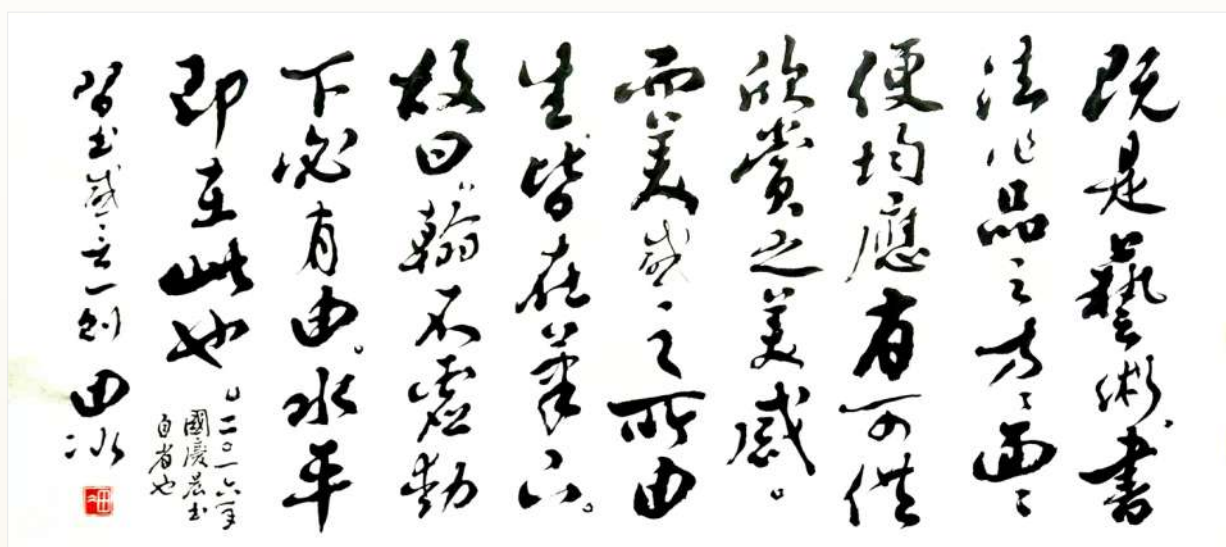 既是藝術書
法作品之方〻面〻
便均應有可供
欣賞之美感。
而美感之所由
生皆在筆下。
故曰:翰不虛動
下必有由。水平
即在此也。
二〇一六年
國慶晨書
自省也
習書感言一則 田冰